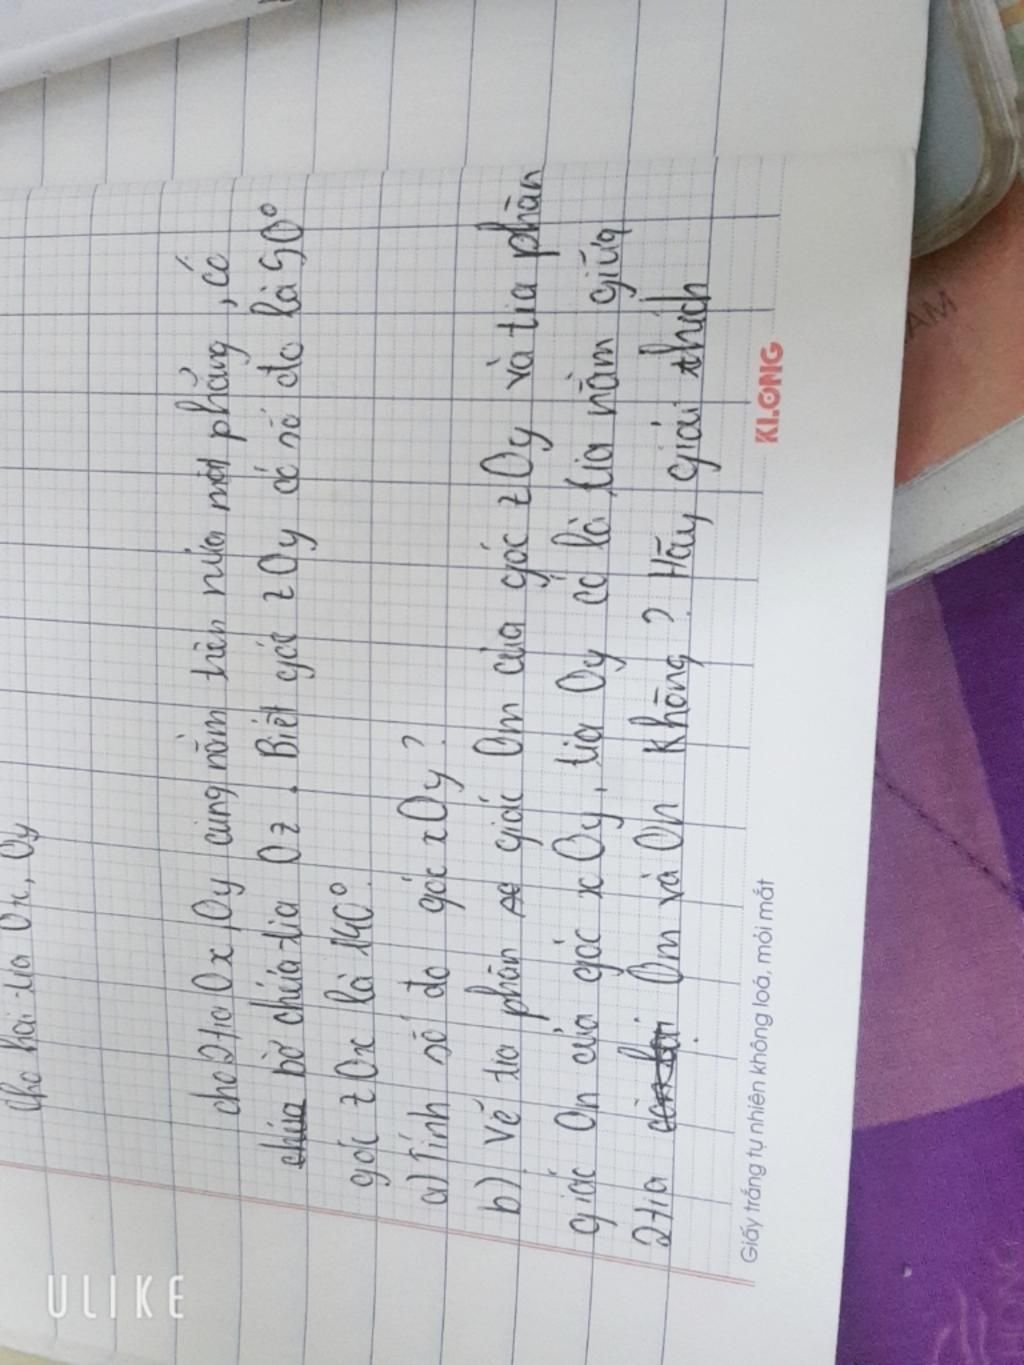 cho hai tia Ox, Oy
cho 2 tia Ox, Oy cùng nằm trên nửa mặt phẳng, có
chứa bờ chứa tia Oz. Biết góc zOy có số đo là 90°
góc zOx là 140°.
a) Tính số đo góc xOy?
b) Vẽ tia phân giác Om của góc zOy và tia phân
giác On của góc xOy, tia Oy có là tia nằm giữa
2 tia Om và On không? Hãy giải thích
KLONG
Giấy trắng tự nhiên không loá, mỏi mắt
ULIKE